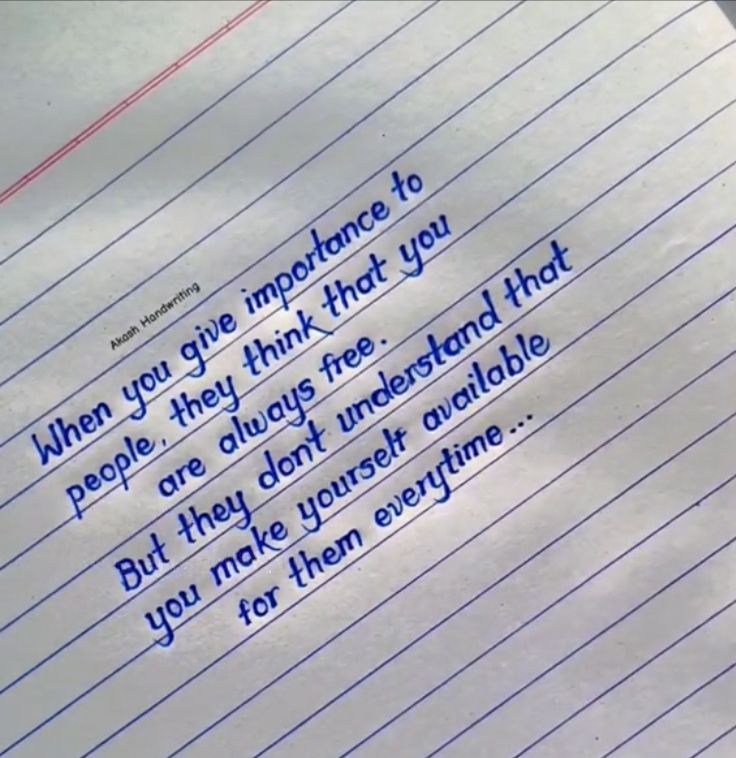 Akash Handwriting
When you give importance to
people, they think that you
are always free.
But they don't understand that
you make yourself available
for them everytime...